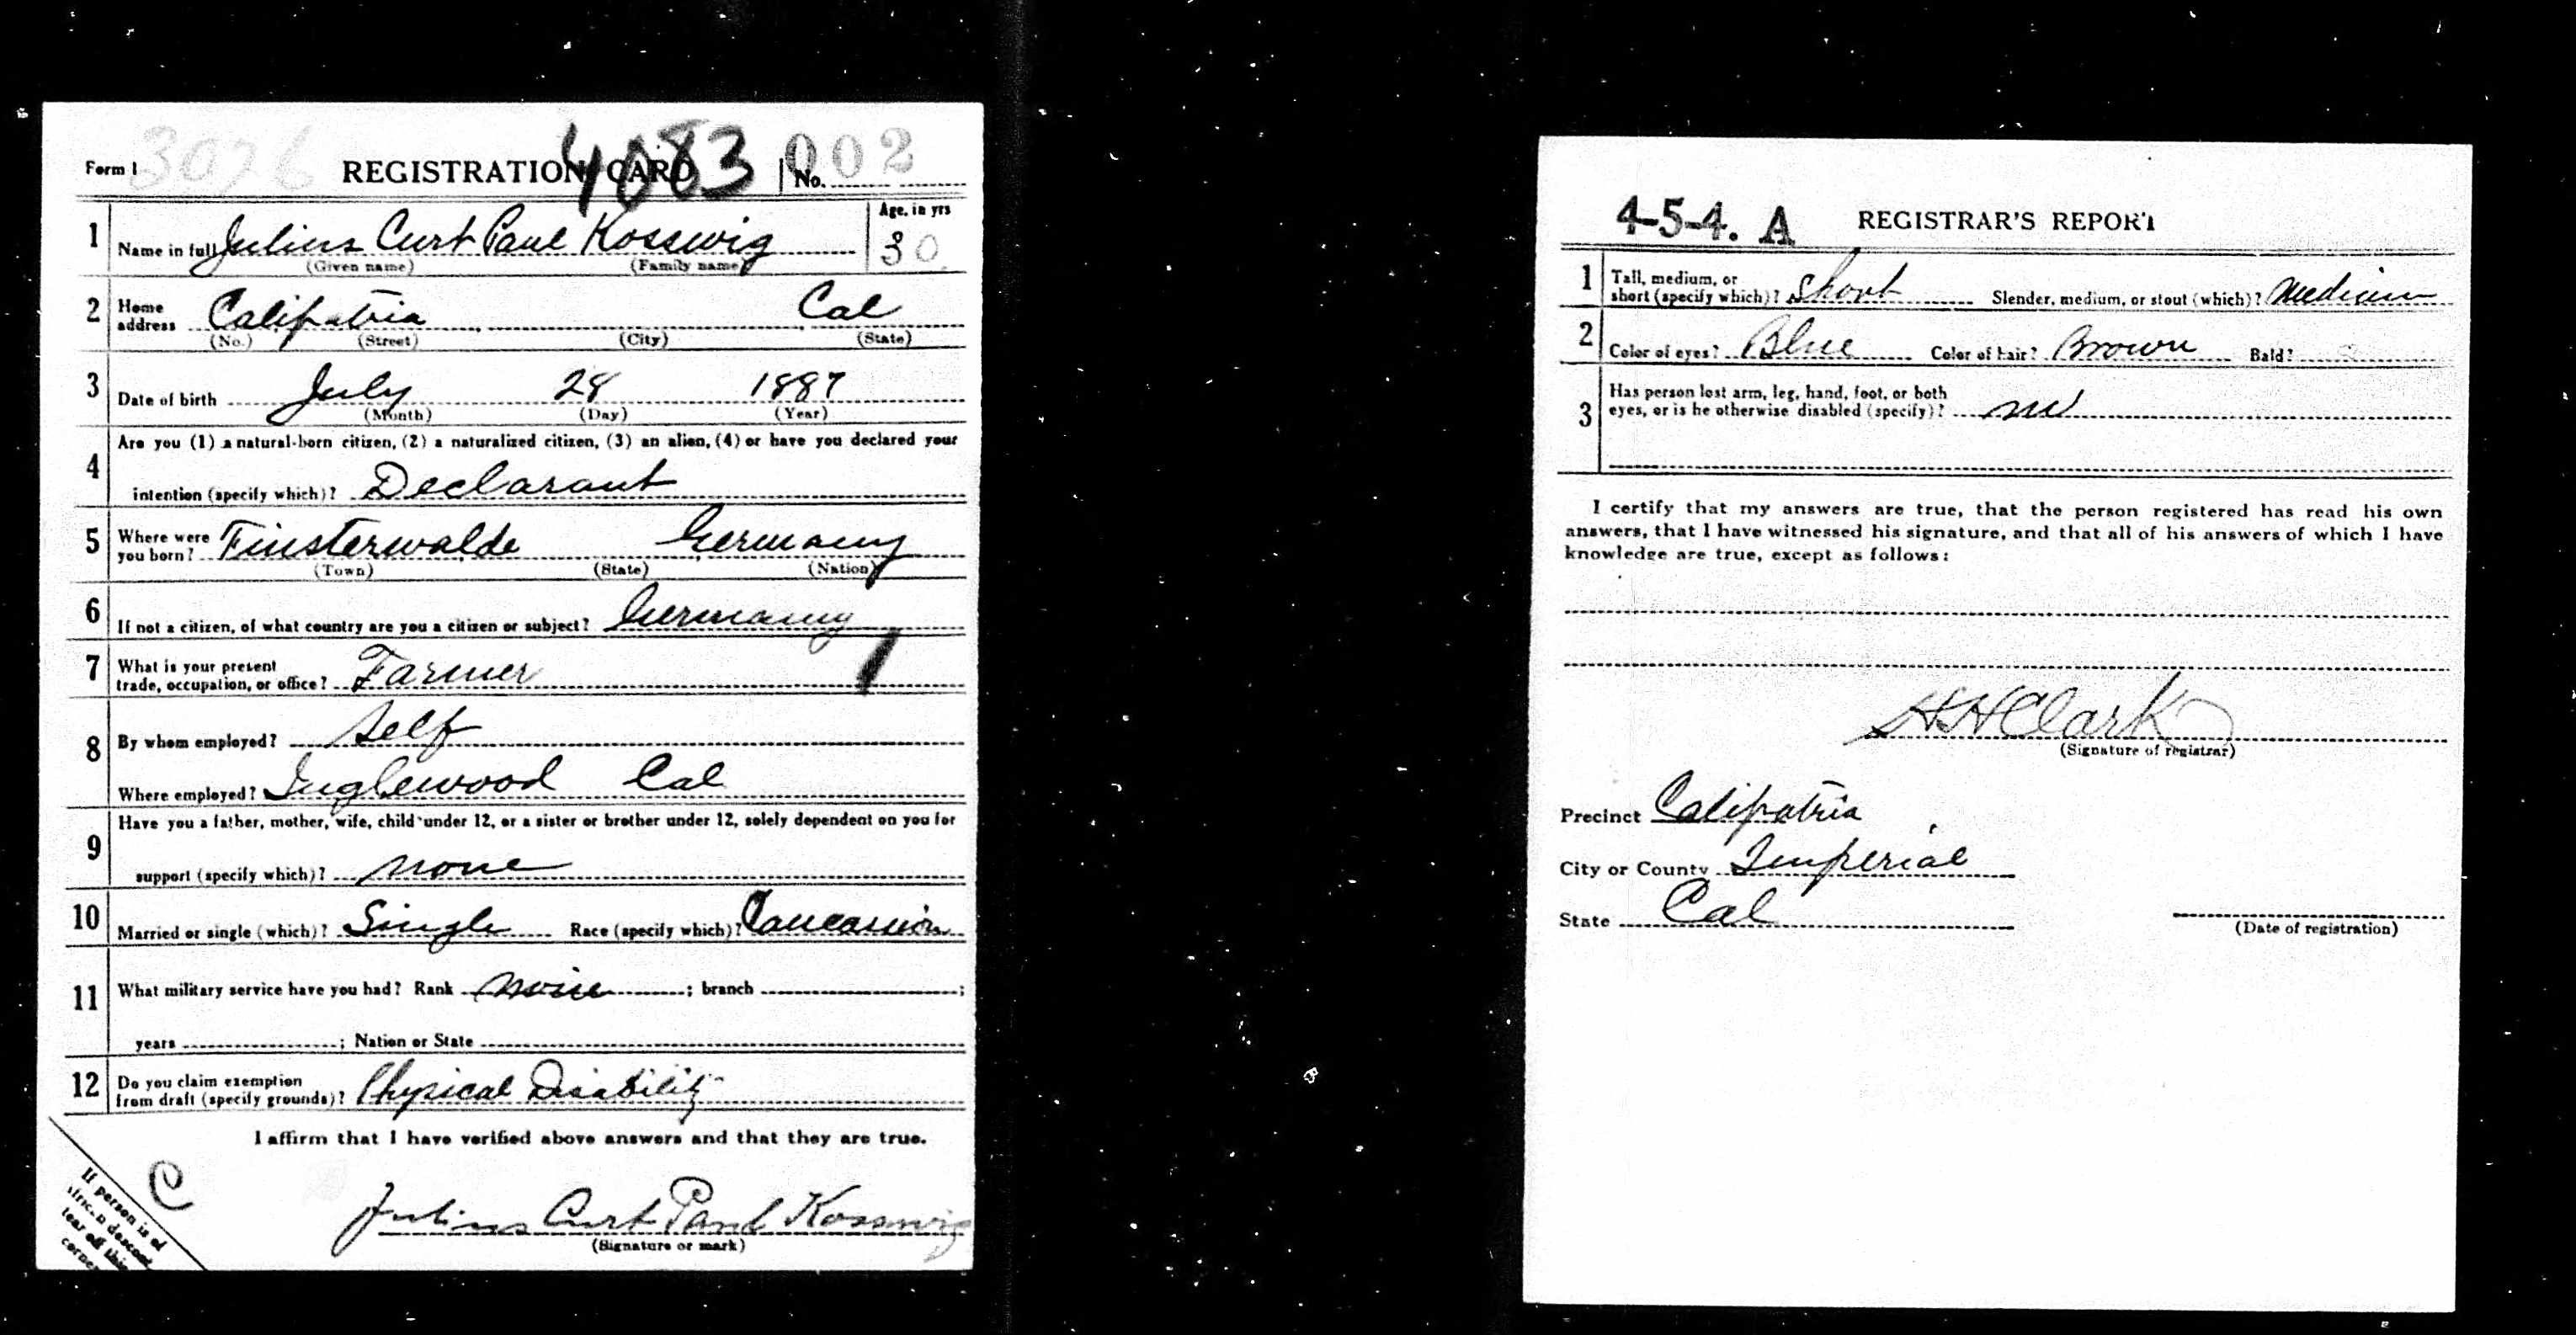 Form 1 3026 REGISTRATION CARD 4083 No. 002
1 Name in full Julius Curt Paul Kosswig Age, in yrs 30
(Given name) (Family name)
2 Home address Calipatria Cal
(No.) (Street) (City) (State)
3 Date of birth July 28 1887
(Month) (Day) (Year)
4 Are you (1) a natural-born citizen, (2) a naturalized citizen, (3) an alien, (4) or have you declared your
intention (specify which)? Declarant
5 Where were you born? Finsterwalde Germany
(Town) (State) (Nation)
6 If not a citizen, of what country are you a citizen or subject? Germany
7 What is your present trade, occupation, or office? Farmer
8 By whom employed? Self
Where employed? Inglewood Cal
9 Have you a father, mother, wife, child under 12, or a sister or brother under 12, solely dependent on you for
support (specify which)? none
10 Married or single (which)? Single Race (specify which)? Caucasion
11 What military service have you had? Rank none ; branch ;
years ; Nation or State
12 Do you claim exemption from draft (specify grounds)? Physical Disability
I affirm that I have verified above answers and that they are true.
C
Julius Curt Paul Kosswig
(Signature or mark)
If person is of
African descent
tear off this
corner
4-5-4. A REGISTRAR'S REPORT
1 Tall, medium, or short (specify which)? Short Slender, medium, or stout (which)? Medium
2 Color of eyes? Blue Color of hair? Brown Bald?
3 Has person lost arm, leg, hand, foot, or both
eyes, or is he otherwise disabled (specify)? no
I certify that my answers are true, that the person registered has read his own
answers, that I have witnessed his signature, and that all of his answers of which I have
knowledge are true, except as follows:
HHClark
(Signature of registrar)
Precinct Calipatria
City or County Imperial
State Cal
(Date of registration)